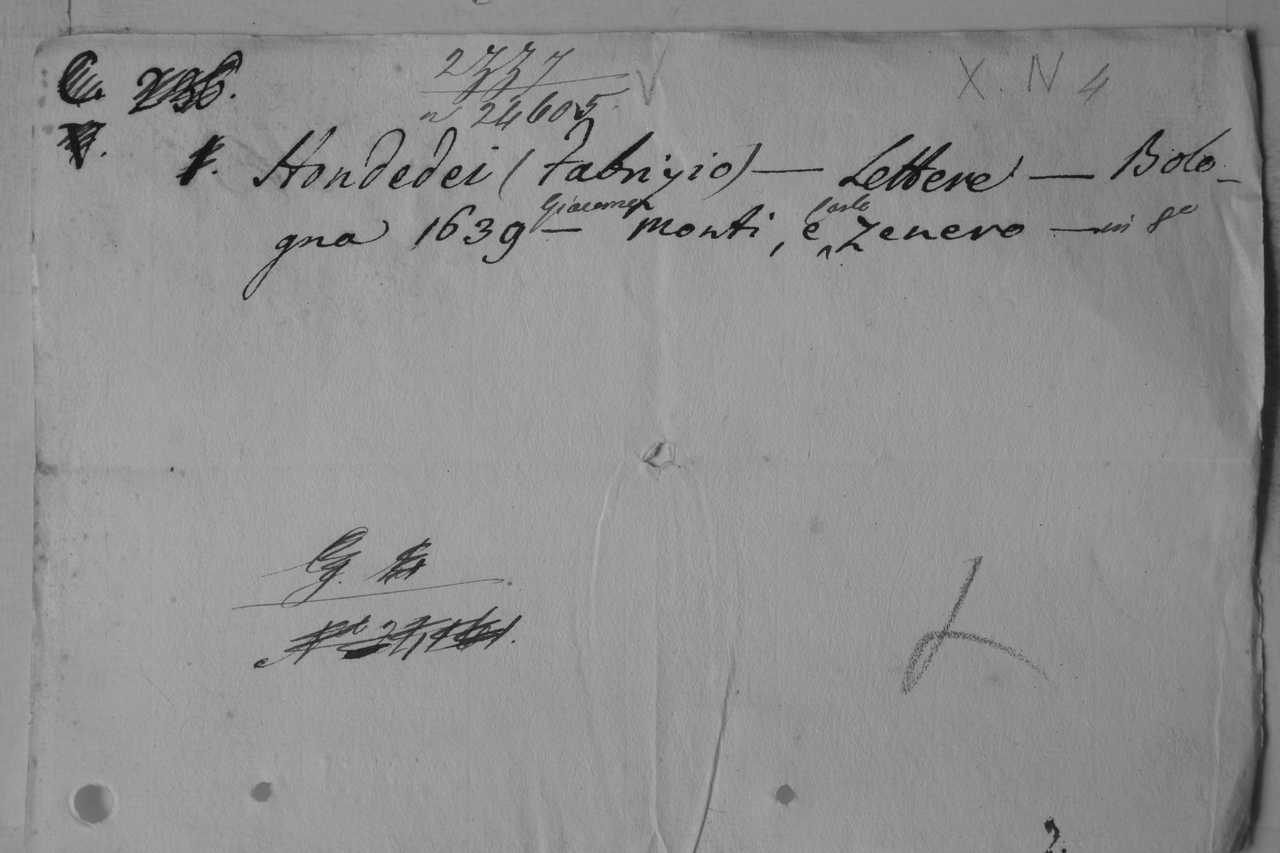 2777
C. 236. n 24605. X. N 4
V. 1. Hondedei (Fabrizio) — Lettere — Bolo-
gna 1639 — Giacomo Monti, e Carlo Zenero — in 8º
Cg.
2.